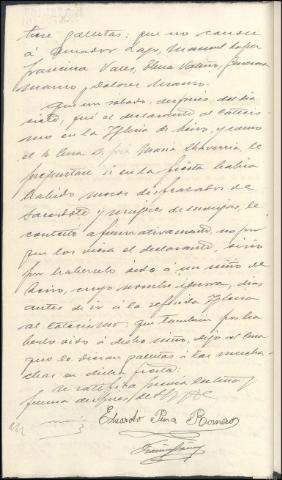 tiene galletas; que no conoce
á Amador Lago, Manuel Lopez
Francisca Vales, Elena Valiño, Generosa
Mauro y Dolores Mauro.
Que un sabado, despues del dia
siete, fué el declarante al catecis
mo en la Yglesia de Seivo, y como
el Sr Cura D. José Maria Chavarria, le
preguntare si en la fiesta habia
habido mozos disfrazados de
Sacerdote y mujeres de monjas, le
contestó afirmativamente, no por
que los viera el declarante, sino
por haberselo oido á un niño de
Seivo, cuyo nombre ignora, dias
antes de ir á la referida Yglesia
al catecismo; que tambien por ha
berlo oido á dicho niño, dijo al Cura
que le dieran galletas á las mucha-
chas en dicha fiesta.
Se ratifica previa lectura y
firma despues de S. Sª
Eduardo Pena Romero